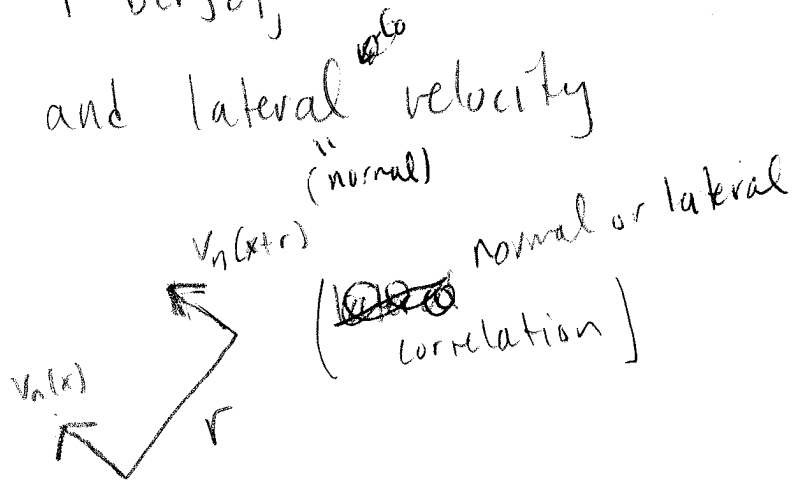 and lateral velocity
(normal)
Vn(x+r)
normal or lateral
correlation
Vn(x)
r